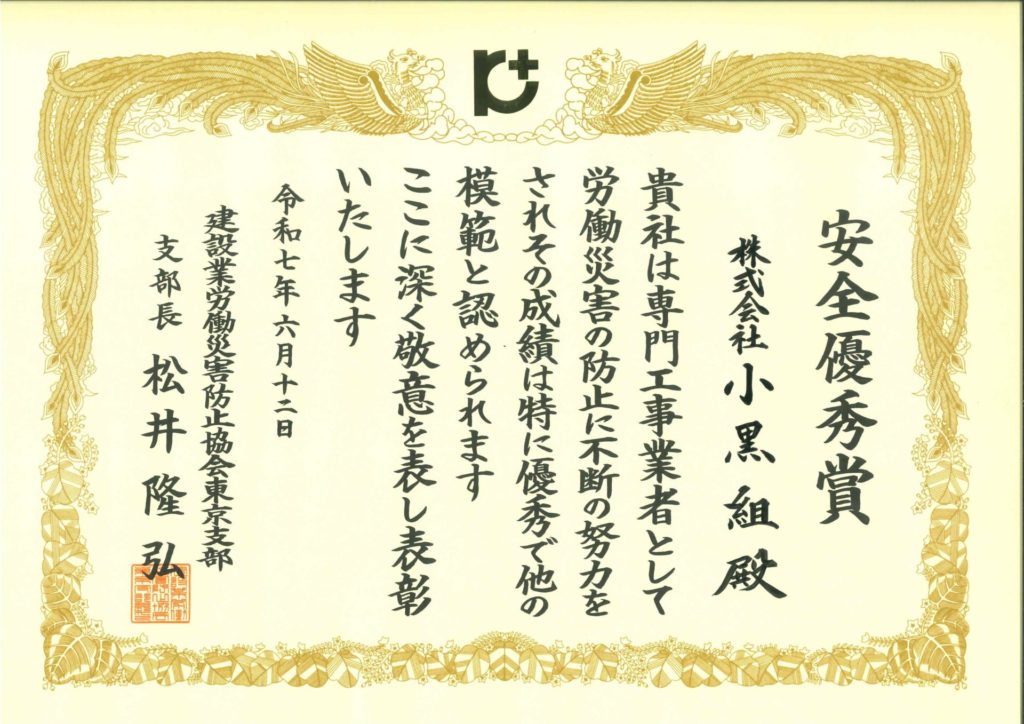 安全優秀賞
株式会社小黒組殿
貴社は専門工事業者として
労働災害の防止に不断の努力を
されその成績は特に優秀で他の
模範と認められます
ここに深く敬意を表し表彰
いたします
令和七年六月十二日
建設業労働災害防止協会東京支部
支部長 松井隆弘